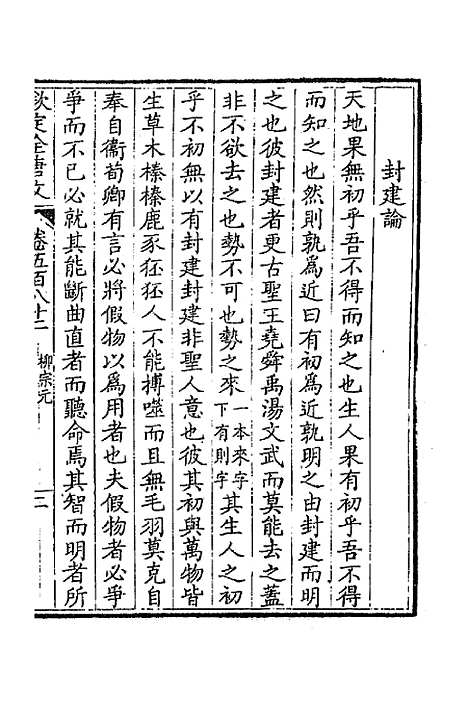 封建論
天地果無初乎吾不得而知之也生人果有初乎吾不得
而知之也然則孰爲近曰有初爲近孰明之由封建而明
之也彼封建者更古聖王堯舜禹湯文武而莫能去之蓋
非不欲去之也勢不可也勢之來一本來字下有則字其生人之初
乎不初無以有封建封建非聖人意也彼其初與萬物皆
生草木榛榛鹿豕狉狉人不能搏噬而且無毛羽莫克自
奉自衞荀卿有言必將假物以爲用者也夫假物者必爭
爭而不已必就其能斷曲直者而聽命焉其智而明者所
欽定全唐文 卷五百八十二 柳宗元 二